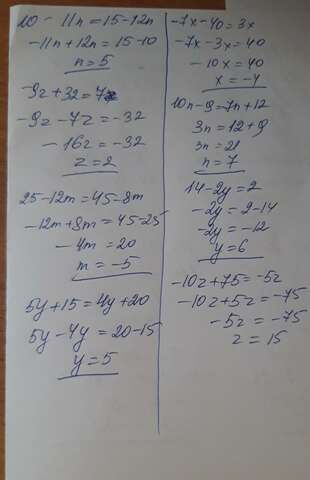 10 - 11n = 15 - 12n
- 11n + 12n = 15 - 10
n = 5
- 9z + 32 = 7z
- 9z - 7z = - 32
- 16z = - 32
z = 2
25 - 12m = 45 - 8m
- 12m + 8m = 45 - 25
- 4m = 20
m = - 5
5y + 15 = 4y + 20
5y - 4y = 20 - 15
y = 5
-7x - 40 = 3x
-7x - 3x = 40
- 10x = 40
x = - 4
10n - 9 = 7n + 12
3n = 12 + 9
3n = 21
n = 7
14 - 2y = 2
- 2y = 2 - 14
- 2y = - 12
y = 6
- 10z + 75 = - 5z
- 10z + 5z = - 75
- 5z = - 75
z = 15